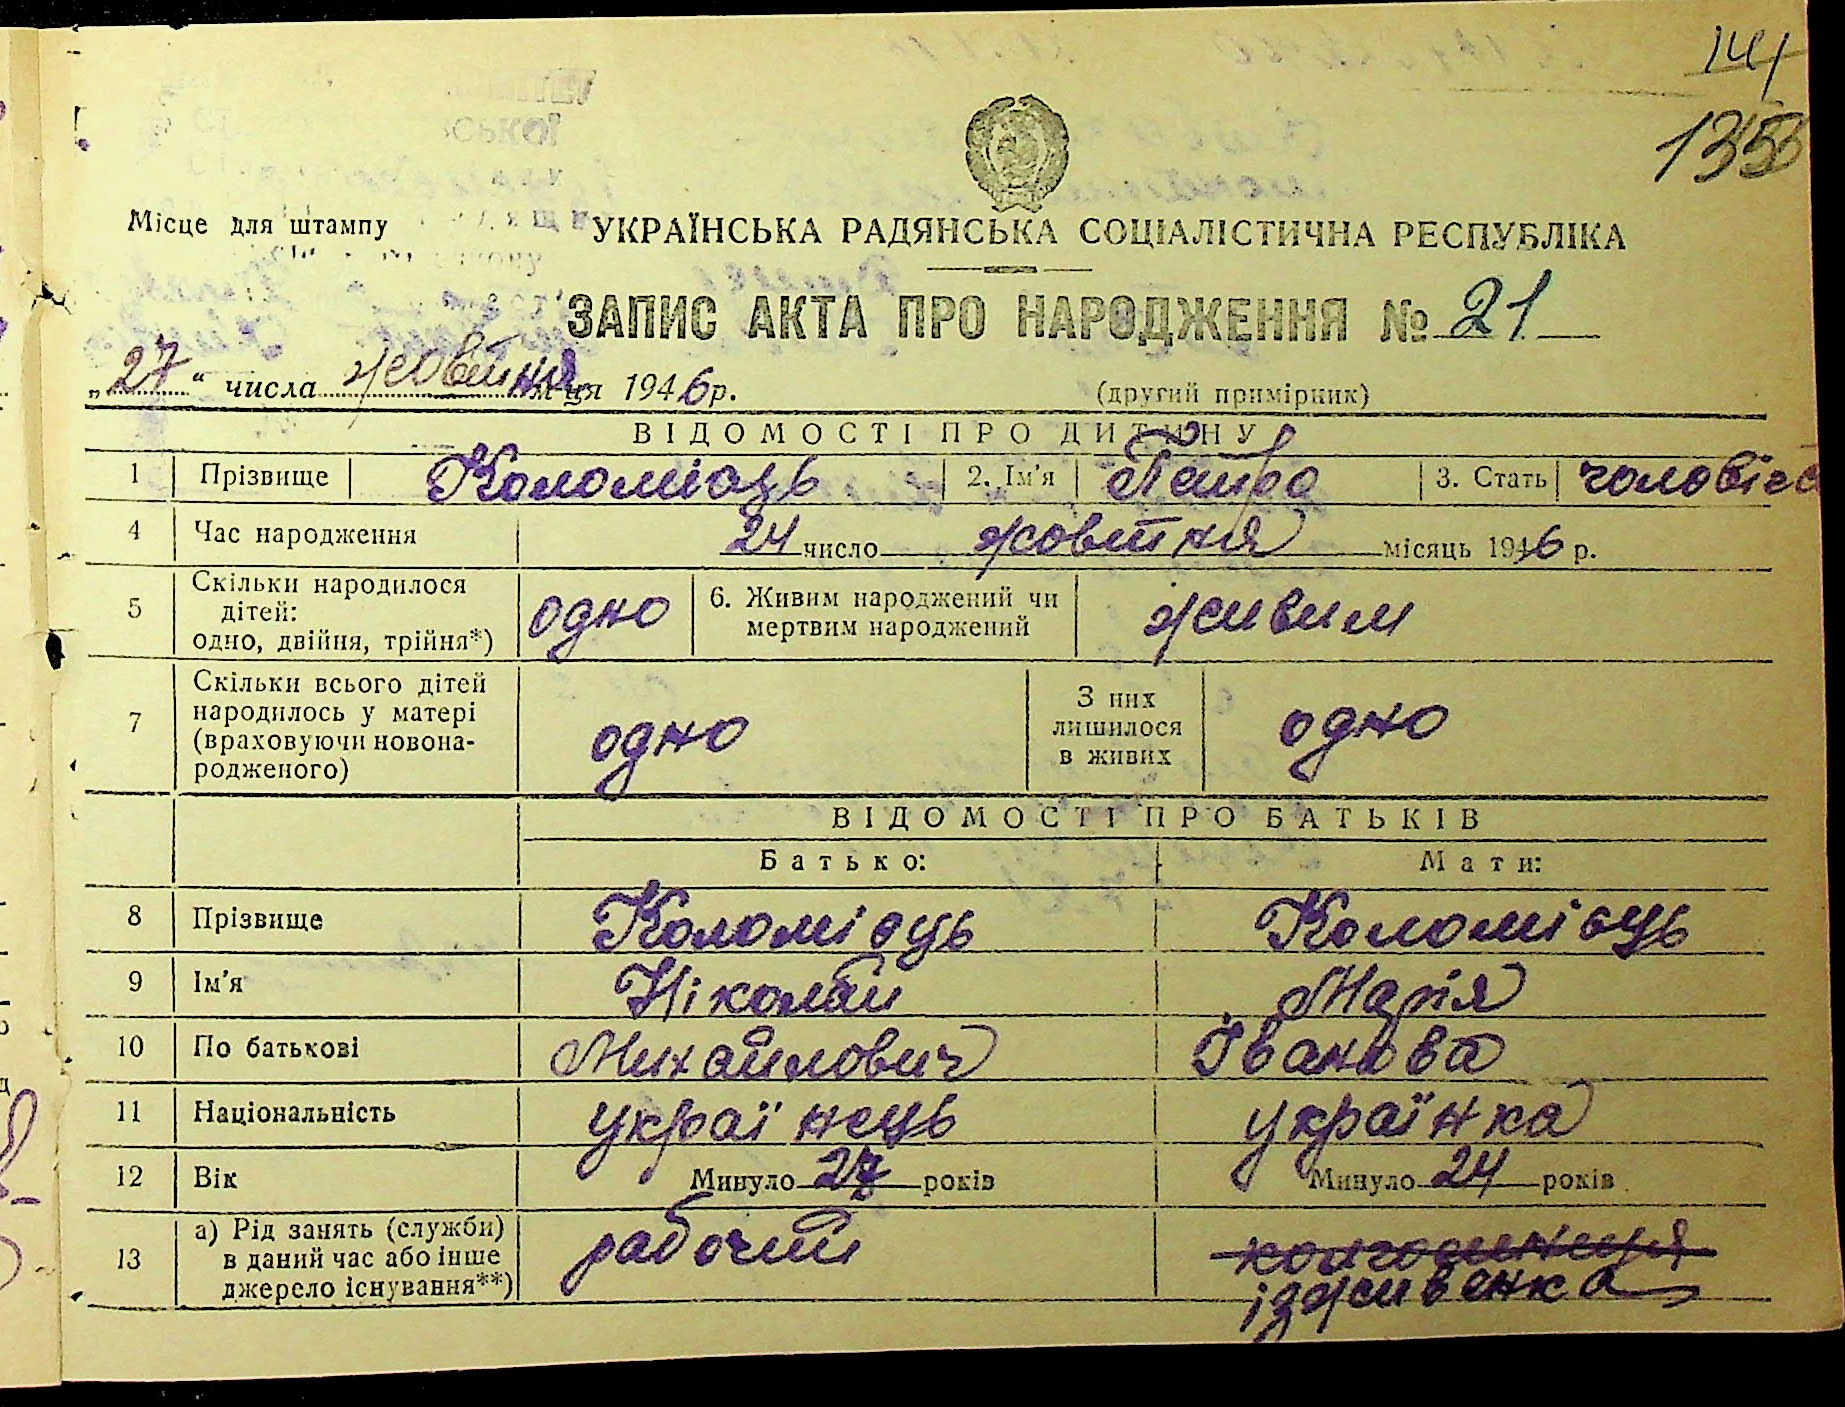 141
Місце для штампу
УКРАЇНСЬКА РАДЯНСЬКА СОЦІАЛІСТИЧНА РЕСПУБЛІКА
ЗАПИС АКТА ПРО НАРОДЖЕННЯ № 21
„27“ числа жовтня м-ця 1946 р. (другий примірник)
ВІДОМОСТІ ПРО ДИТИНУ
1 Прізвище Коломієць 2. Ім'я Петро 3. Стать чоловіча
4 Час народження 24 число жовтня місяць 1946 р.
5 Скільки народилося дітей: одно, двійня, трійня*) одно 6. Живим народжений чи мертвим народжений живим
7 Скільки всього дітей народилось у матері (враховуючи новонародженого) одно З них лишилося в живих одно
ВІДОМОСТІ ПРО БАТЬКІВ
Батько: Мати:
8 Прізвище Коломієць Коломієць
9 Ім'я Ніколай Марія
10 По батькові Михайлович Іванова
11 Національність українець українка
12 Вік Минуло 27 років Минуло 24 років
13 а) Рід занять (служби) в даний час або інше джерело існування**) рабочий колгоспниця ізживенка